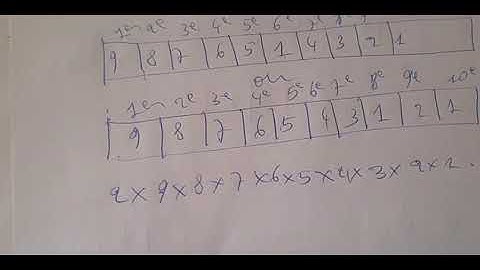 1er 2e 3e 4e 5e 6e 7e
9 8 7 6 5 1 4 3 2 1
ou
1er 2e 3e 4e 5e 6e 7e 8e 9e 10e
9 8 7 6 5 4 3 1 2 1
2×9×8×7×6×5×4×3×2×1.